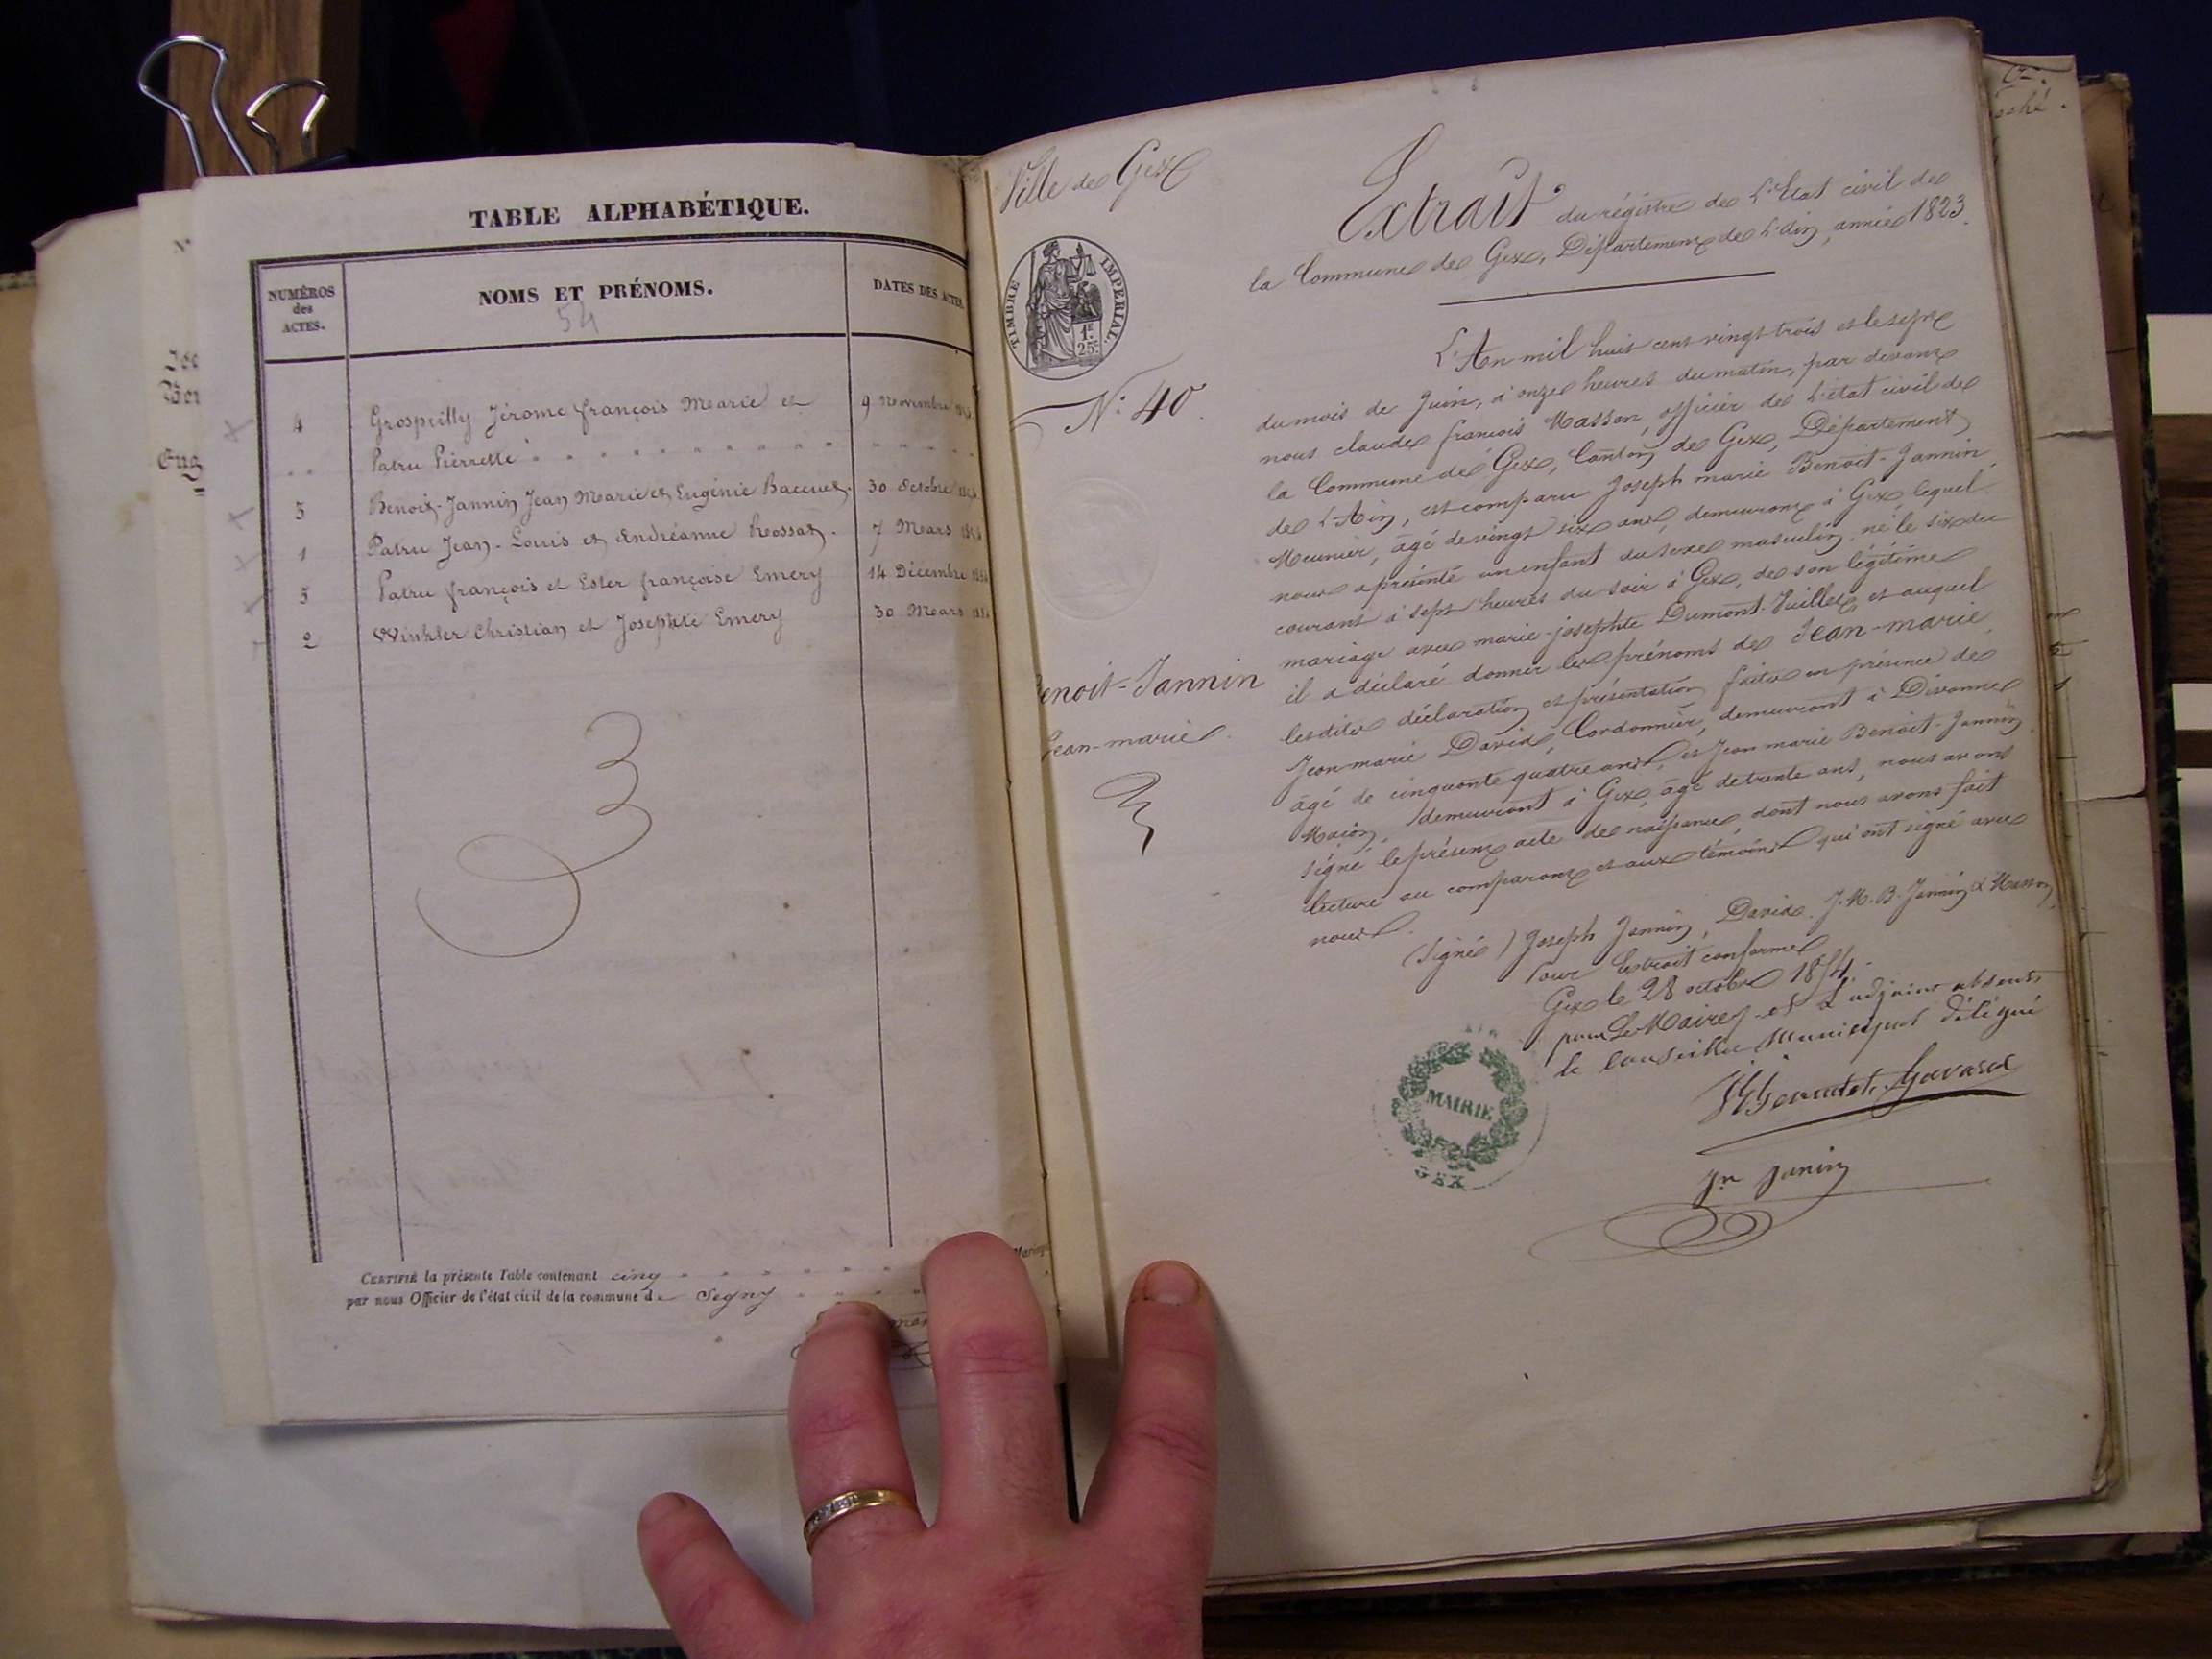 TABLE ALPHABÉTIQUE.
NUMÉROS
des
ACTES.
NOMS ET PRÉNOMS.
54
DATES DES ACTES.
4 Grospeilly Jérome françois Marie et 9 Novembre
Patru Pierrette
3 Benoit-Jannin Jean Marie et Eugénie Baccuet. 30 Octobre
1 Patru Jean-Louis et Andréanne Rossat. 7 Mars
5 Patru françois et Ester françoise Emery 14 Décembre
2 Winkler Christian et Josephte Emery 30 Mars
CERTIFIÉ la présente Table contenant cinq
Mariage
par nous Officier de l'état civil de la commune de Segny
Ville de Gex
TIMBRE IMPERIAL.
1F
25C
N° 40.
Benoit-Jannin
Jean-marie.
Extrait du régistre de L'Etat civil de
la Commune de Gex, Département de L'Ain, année 1823.
L'An mil huit cent vingt trois et le sept
du mois de Juin, à onze heures du matin, par devant
nous claude francois Masson, officier de l'état civil de
la Commune de Gex, Canton de Gex, Département
de l'Ain, est comparu Joseph marie Benoit-Jannin,
Meunier, âgé de vingt six ans, demeurant à Gex lequel
nous a présenté un enfant du sexe masculin, né le six du
courant à sept heures du soir à Gex, de son légitime
mariage avec marie-josephte Dumont-Juillet, et auquel
il a déclaré donner les prénoms de Jean-marie.
lesdites déclaration et présentation faites en présence de
Jean-marie David, Cordonnier, demeurant à Divonne
âgé de cinquante quatre ans, et Jean marie Benoit-Jannin,
Maçon, demeurant à Gex, âgé de trente ans, nous avons
signé le présent acte de naissance, dont nous avons fait
lecture au comparant et aux témoins qui ont signé avec
nous.
(Signé) Joseph Jannin, David. J. M. B. Jannin & Masson,
Pour Extrait conforme
Gex le 28 octobre 1854.
pour Le Maire et L'adjoint absents,
le Conseiller Municipal délégué
Gavard
Jn Janin
MAIRIE
GEX